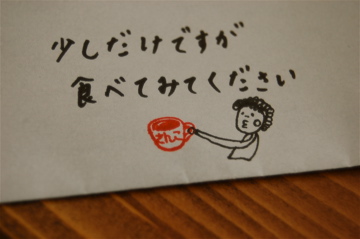 少しだけですが
食べてみてください